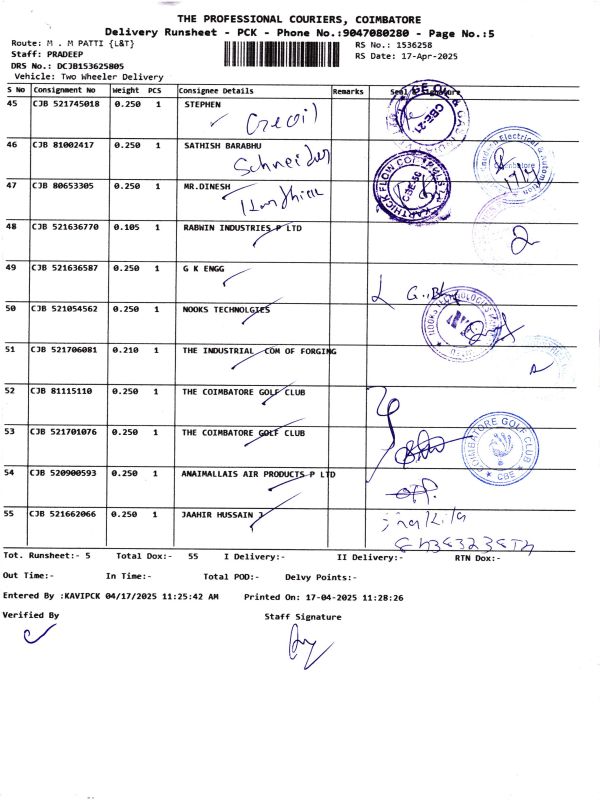 THE PROFESSIONAL COURIERS, COIMBATORE
Delivery Runsheet - PCK - Phone No.:9047080280 - Page No.:5
Route: M . M PATTI {L&T} RS No.: 1536258
Staff: PRADEEP RS Date: 17-Apr-2025
DRS No.: DCJB153625805
Vehicle: Two Wheeler Delivery
S No Consignment No Weight PCS Consignee Details Remarks Seal & Signature
45 CJB 521745018 0.250 1 STEPHEN
CBE-21
46 CJB 81002417 0.250 1 SATHISH BARABHU
Schneider
Electrical & Automation
Coimbatore
17/4
47 CJB 80653305 0.250 1 MR.DINESH
KARTHICK FLOW CO
CBE-50
48 CJB 521636770 0.105 1 RABWIN INDUSTRIES P LTD
49 CJB 521636587 0.250 1 G K ENGG
50 CJB 521054562 0.250 1 NOOKS TECHNOLGIES
NOOKS TECHNOLOGIES
51 CJB 521706081 0.210 1 THE INDUSTRIAL COM OF FORGING
52 CJB 81115110 0.250 1 THE COIMBATORE GOLF CLUB
53 CJB 521701076 0.250 1 THE COIMBATORE GOLF CLUB
COIMBATORE GOLF CLUB
CBE
54 CJB 520900593 0.250 1 ANAIMALLAIS AIR PRODUCTS P LTD
55 CJB 521662066 0.250 1 JAAHIR HUSSAIN J
Tot. Runsheet:- 5 Total Dox:- 55 I Delivery:- II Delivery:- RTN Dox:-
Out Time:- In Time:- Total POD:- Delvy Points:-
Entered By :KAVIPCK 04/17/2025 11:25:42 AM Printed On: 17-04-2025 11:28:26
Verified By Staff Signature